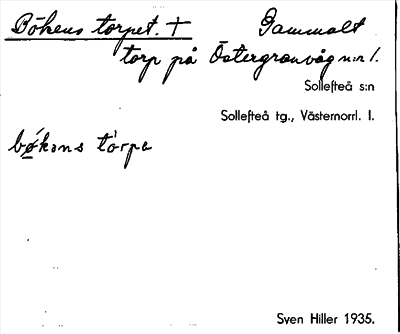 Bökens torpet. † Gammalt
torp på Östergranvåg n:r 1.
Sollefteå s:n
Sollefteå tg., Västernorrl. l.
bø̀kəns tǫrpe
Sven Hiller 1935.